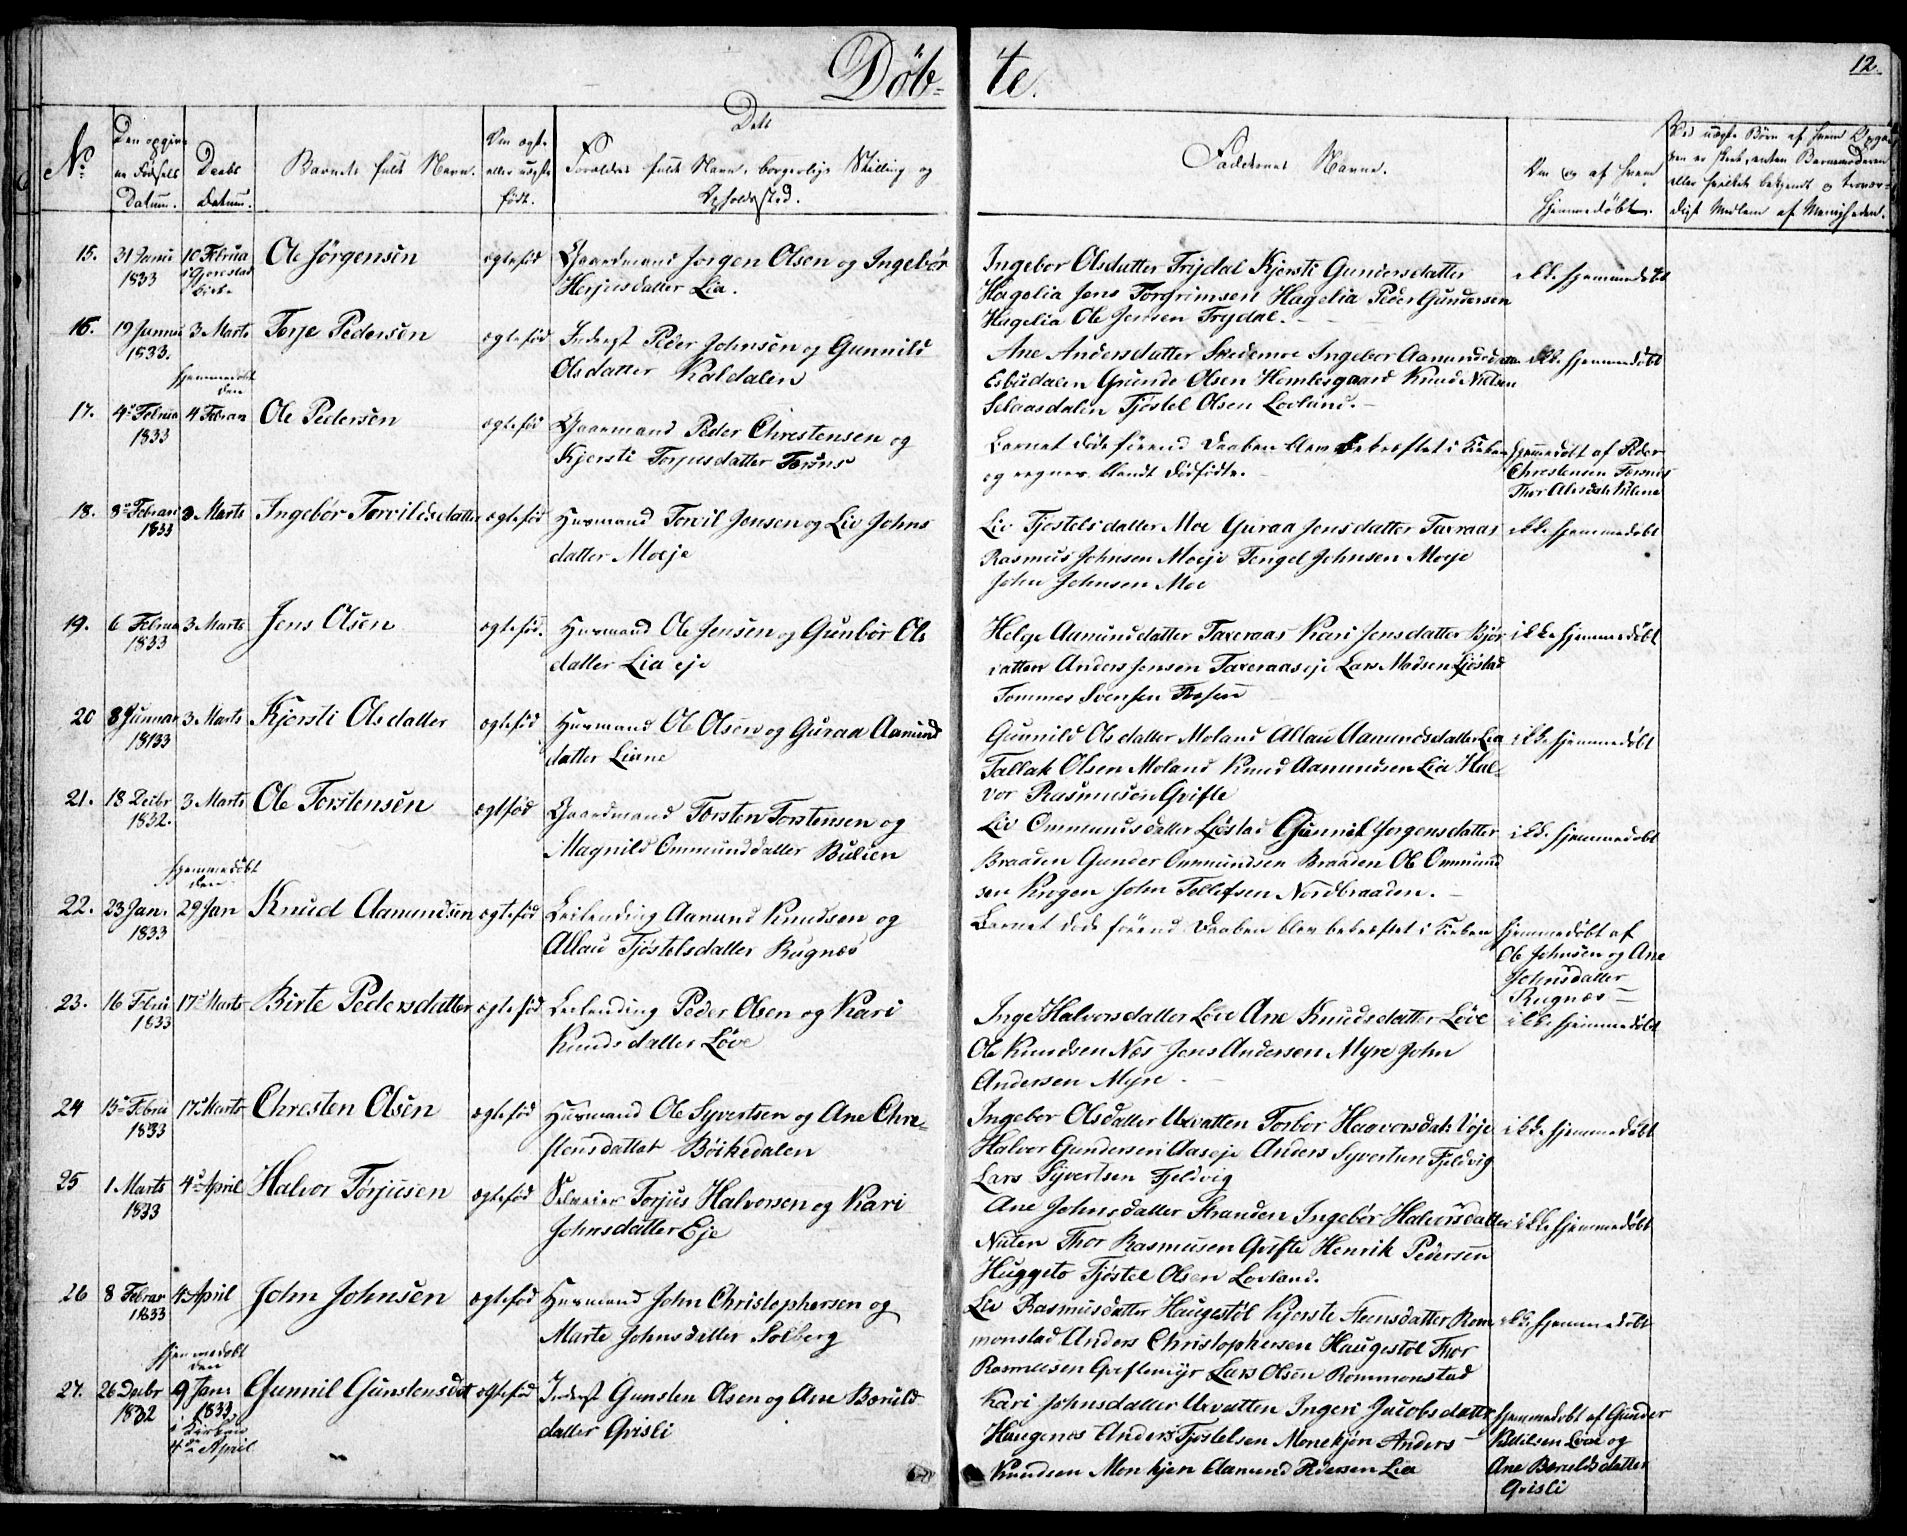 Döb-te.
12.
No
Den opgivne Fødsels Datum.
Daabs Datum.
Barnets fulde Navn.
Om ægte eller uægte født.
Forældres fulde Navn, borgerlige Stilling og Opholdssted.
Faddernes Navne.
Om og af hvem hjemmedøbt.
15.
31 Janu 1833
10 Februa
Ole Jörgensen
ægtefød
Gaardmand Jörgen Olsen og Ingebör
Herjusdatter Lia.
Ingebor Olsdatter Frijdal Kjersti Gundersdatter
Hagelia Jens Torgrimsen Hagelia Peder Gundersen
Hagelia Ole Jensen Frydal.
ikke hjemmedøbt
16.
19 Januu 1833.
3 Marts
Terje Pedersen
ægtefød
Inderst Peder Johnsen og Gunnild
Olsdatter Kaldalen
Ane Andersdatter Skedemoe Ingebor Aamundsdatter
Esbudalen Gunde Olsen Hemlesgaard Knud Nielsen
Selaasdalen Tjöstel Olsen Lovland.
ikke hjemmedøbt
hjemmedöbt den
17.
4 Februa 1833
4 Februar
Ole Pedersen
ægtefød
Gaarmand Peder Chrestensen og
Kjersti Torjusdatter
Barnet døde førend Daaben blev bekræftet i Kirken
og regnes blandt dødfødte.
hjemmedøbt af Peder
Chrestensen
18.
8 Februari 1833
3 Marts
Ingebör Torvildsdatter
ægtefød
Huusmand Torvil Jensen og Liv Johns
datter Moeje
Liv Tjöstelsdatter Moe Guraa Jensdatter Taxraas
Rasmus Johnsen Moeje Tengel Johnsen Moeje
John Johnsen Moe
ikke hjemmedøbt
19.
6 Februa 1833
3 Marts
Jens Olsen
ægtefød.
Huusmand Ole Jensen og Gunbör Ols
datter Lia eje
Helge Aamundatter Taxeraas Kari Jensdatter Bjør
vatten Anders Jensen Taxeraaseje Lars Madsen Ljöstad
Tommes Svensen
ikke hjemmedøbt
20
8 Januar 1833
3 Marts
Kjersti Olsdatter
ægtefød
Huusmand Ole Olsen og Guraa Aamund
datter Liane
Gunnild Olsdatter Moland Allau Aamundsdatter Lia
Tallak Olsen Moland Knud Aamundsen Lia Hal-
vor Rasmusen Gvifte
ikke hjemmedøbt
21.
18 Decbr 1832.
3 Marts
Ole Torstensen
ægtefød
Gaardmand Torsten Torstensen og
Magnild Ommunddatter Bulien
Liv Ommundsdatter Ljöstad Gunnil Jörgensdatter
Braaden Gunder Ommundsen Braaden Ole Ommund
sen Krogen John Tellefsen Nordbraaden.
ikke hjemmedøbt
hjemmedøbt den
22.
23 Jan. 1833
29 Jan
Knud Aamundsen
ægtefød
Leilending Aamund Knudsen og
Allau Tjöstelsdatter Rugnæs
Barnet døde førend Daaben blev bekræftet i Kirken
hjemmedøbt af
Ole Johnsen og Ane
Johnsdatter
Rugnæs
23.
16 Febru 1833
17 Marts
Birte Pedersdatter
ægtefød
Leilending Peder Olsen og Kari
Knudsdatter Löve
Inge Halvorsdatter Löve Ane Knudsdatter Löve
Ole Knudsen Næs Jens Andersen Myre John
Andersen Myre.
ikke hjemmedøbt
24
15 Febru 1833
17 Marts
Chresten Olsen
ægtefød
Huusmand Ole Syvertsen og Ane Chre-
stensdatter Böikedalen
Ingebor Olsdatter Urvatten Torbor Haavorsdatr Voje
Halvor Gundersen Aaseje Anders Syvertsen Fjeldvig
Lars Syvertsen Fjeldvig
ikke hjemmedøbt
25
1 Marts 1833
4 April
Halvor Torjusen
ægtefød
Selveier Torjus Halvorsen og Kari
Johnsdatter Eje
Ane Johnsdatter Stranden Ingebör Halvorsdatter
Nuten Thor Rasmusen Gvifte Henrik Pedersen
Huggeto Tjöstel Olsen Lovland.
ikke hjemmedøbt
26
8 Februar 1833
4 April
John Johnsen
ægtefød
Huusmand John Christophersen og
Marte Johnsdatter Solberg
Liv Rasmusdatter Haugestöl Kjerste Steensdatter Rom
monstad Anders Christophersen Haugestöl Thor
Rasmusen Gviftemyr Lars Olsen Rommonstad
ikke hjemmedøbt
hjemmedøbt den
27.
26 Decbr 1832
9 Jan 1833
i Kirken
4 April
Gunnil Gunstensdat
ægtefød
Inderst Gunsten Olsen og Ane Beruld
datter Gvisli
Kari Johnsdatter Urvatten Ingeri Jacobsdatter
Haugenes Anders Tjöstelsen Monekjön Anders
Knudsen Monkjen Aamund Pedersen Lia
hjemmedøbt af Gunder
Ketilsen Löve og
Ane Beruldsdatter
Gvisli